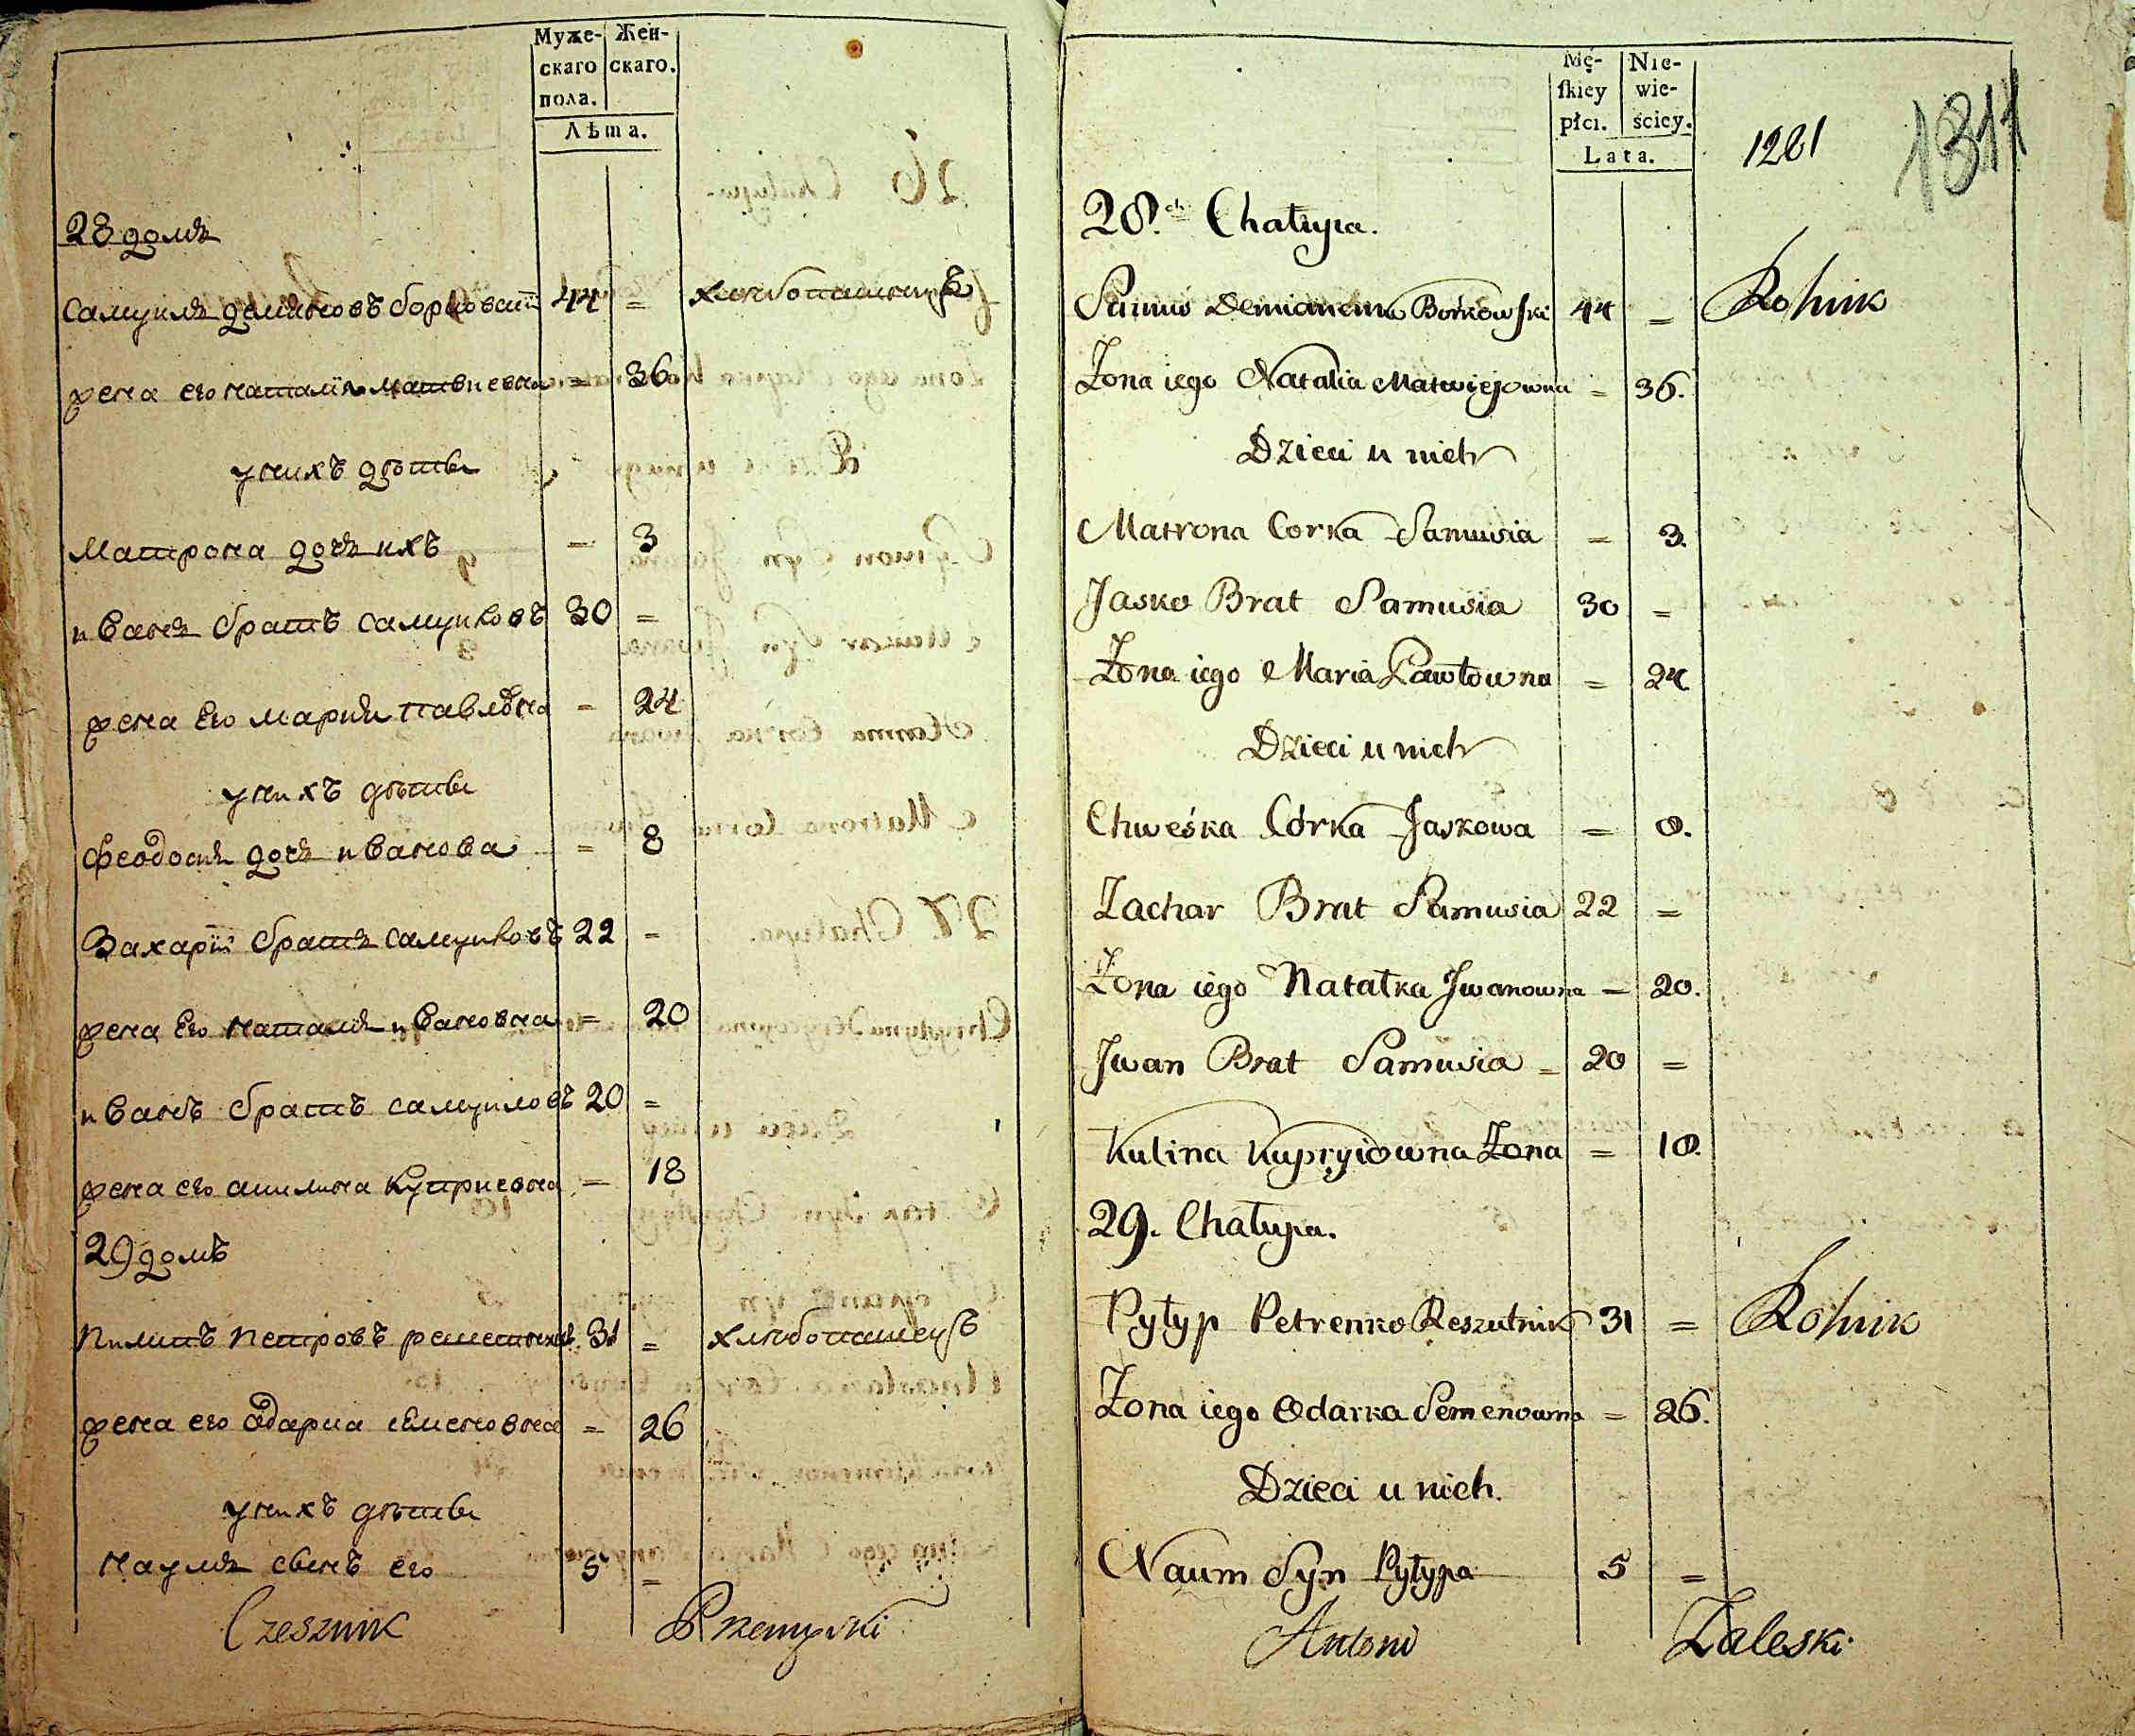 Муже- Жен-
скаго скаго.
пола.
Лѣта.
28 домъ
Самуилъ демяновъ борковскій 44 = хлебопашецъ
жена его наталія матвиевна = 36
у нихъ дѣти
Матрона дочь ихъ = 3
иванъ братъ самуиловъ 30 =
жена его мария павловна = 24
у нихъ дѣти
Феодосия дочь иванова = 8
Захарій братъ самуиловъ 22 =
жена его наталя ивановна = 20
иванъ братъ самуиловъ 20 =
жена его акилина куприевна = 18
29 домъ
Пилипъ петровъ 31 = хлебопашецъ
жена его одарка семеновна = 26
у нихъ дѣти
наумъ сынъ его 5 =
Czesznik
Mę- Nie-
skiey wie-
płci. ściey.
Lata.
1281
1311
28. Chałupa.
Samus Demianenko Borkowski 44 = Rolnik
Żona iego Natalia Matwiejowna = 36.
Dzieci u nich
Matrona Corka Samusia = 3.
Jasko Brat Samusia 30 =
Żona iego Maria Pawłowna = 24
Dzieci u nich
Chweśka Córka Jaskowa = 8.
Zachar Brat Samusia 22 =
Żona iego Natałka Jwanowna = 20.
Jwan Brat Samusia = 20 =
Kulina Kupryiowna Żona = 18.
29. Chałupa.
Pyłyp Petrenko Reszutnik 31 = Rolnik
Żona iego Odarka Semenowna = 26.
Dzieci u nich.
Naum Syn Pyłypa 5 =
Antoni Zaleski